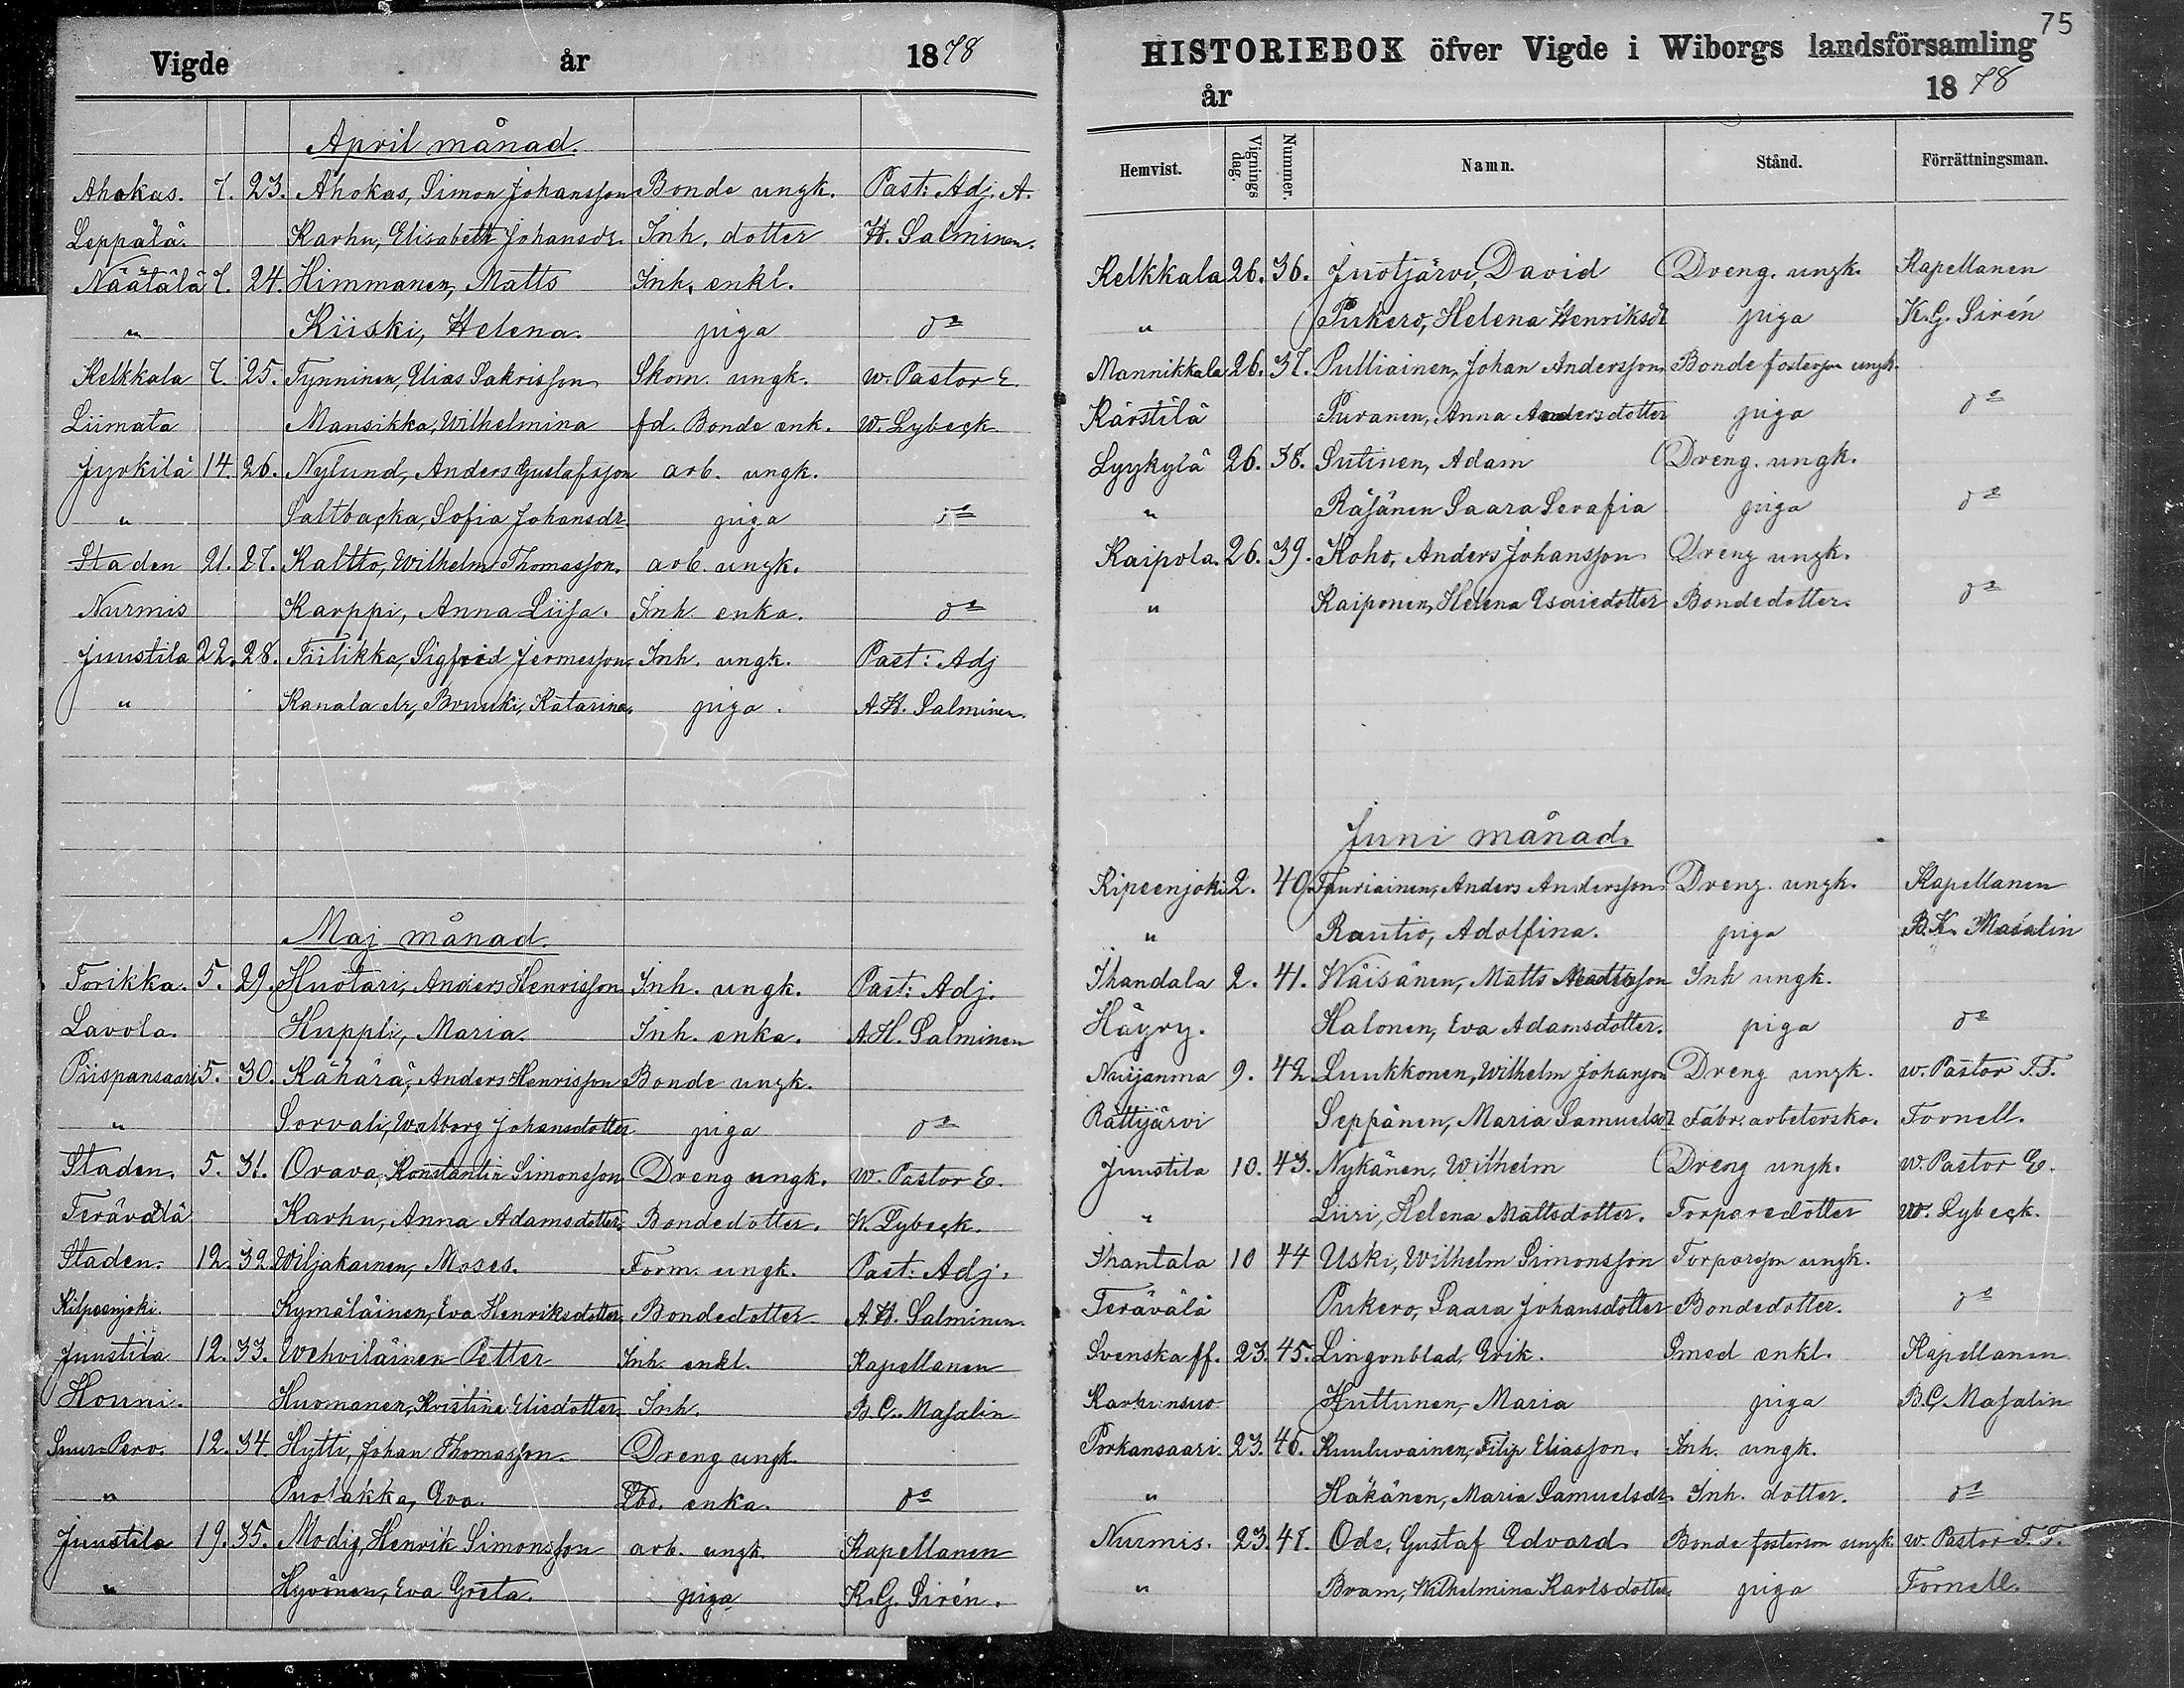 Vigde år 1878
April månad.
Ahokas. 7. 23. Ahokas, Simon Johansson Bonde ungk. Past: Adj. A.
Leppälä. Karhu, Elisabeth Johansdr. Inh. dotter H. Salminen.
Näätälä 7. 24. Himmanen, Matts Inh. enkl.
" Kiiski, Helena. piga do
Kelkkala 7. 25. Tynninen, Elias Sakrisson Skom. ungk. w. Pastor E.
Liimata Mansikka, Wilhelmina fd. Bonde enk. W. Lybeck
Jyrkilä 14. 26. Nylund, Anders Gustafsson arb. ungk.
" Saltbacka, Sofia Johansdr piga do
Staden 21. 27. Kaltto, Wilhelm Thomasson. arb. ungk.
Nurmis Karppi, Anna Liisa. Inh. enka. do
Juustila 22. 28. Tiilikka, Sigfrid Jermesson Inh. ungk. Past: Adj
" Katarina. piga. A.H. Salminen.
Maj månad.
Torikka. 5. 29. Huotari, Anders Henrisson Inh. ungk. Past: Adj.
Lavola. Huppli, Maria. Inh. enka. A.H. Salminen
Piispansaari 5. 30. Kähärä, Anders Henrisson Bonde ungk.
" Sorvali, Walborg Johansdotter piga do
Staden. 5. 31. Orava, Konstantin Simonsson Dreng ungk. W. Pastor E.
Terävälä Karhu, Anna Adamsdotter. Bondedotter. W. Lybeck.
Staden. 12. 32. Wiljakainen, Moses. Form. ungk. Past: Adj.
Kilpeenjoki. Kymäläinen, Eva Henriksdotter. Bondedotter A.H. Salminen.
Juustila 12. 33. Wehviläinen Petter Inh. enkl. Kapellanen
Houni. Huomanen, Kristina Elisdotter Inh. B.C. Masalin
Suur-Pero. 12. 34. Hytti, Johan Thomasson. Dreng ungk.
" Puolakka, Eva. enka. do
Juustila 19. 35. Modig, Henrik Simonsson arb. ungk. Kapellanen
" Hyvönen, Eva Greta. piga K.G. Sirén.
75
HISTORIEBOK öfver Vigde i Wiborgs landsförsamling
år 1878
Hemvist. Vignings dag. Nummer. Namn. Stånd. Förrättningsman.
Kelkkala 26. 36. Juotjärvi, David Dreng. ungk. Kapellanen
" Pukero, Helena Henriksdr piga K.G. Sirén
Mannikkala 26. 37. Pulliainen, Johan Andersson Bonde fosterson ungk.
Kärstilä Puranen, Anna Andersdotter piga do
Lyykylä 26. 38. Sutinen, Adam Dreng. ungk.
" Räsänen Saara Serafia piga do
Kaipola. 26. 39. Koho, Anders Johansson Dreng ungk.
" Kaiponen, Helena Esaiedotter Bondedotter. do
Juni månad.
Kipeenjoki 2. 40. Tauriainen, Anders Andersson Dreng. ungk. Kapellanen
" Rautio, Adolfina. piga B.K. Masalin
Ihandala 2. 41. Wäisänen, Matts Mattsson Inh ungk.
Häyry. Halonen, Eva Adamsdotter. piga do
Nuijanma 9. 42. Luukkonen, Wilhelm Johansson Dreng ungk. w. Pastor T.T.
Rättijärvi Seppänen, Maria Samuelsdr Fabr. arbeterska. Fornell.
Juustila 10. 43. Nykänen, Wilhelm Dreng ungk. W. Pastor E.
" Liiri, Helena Mattsdotter. Torparedotter W. Lybeck.
Ihantala 10 44 Uski, Wilhelm Simonsson Torparson ungk.
Terävälä Pukero, Saara Johansdotter Bondedotter. do
Svenska ff. 23. 45. Lingonblad, Erik. Smed enkl. Kapellanen
Karhunsuo Huttunen, Maria piga B.C. Masalin
Porkansaari. 23. 46. Kuuluvainen, Filip Eliasson. Inh. ungk.
" Häkänen, Maria Samuelsdr. Inh. dotter. do
Nurmis. 23. 47. Ode, Gustaf Edvard Bonde fosterson ungk. w. Pastor T.T.
" Bram, Wilhelmina Karlsdotter. piga Fornell.